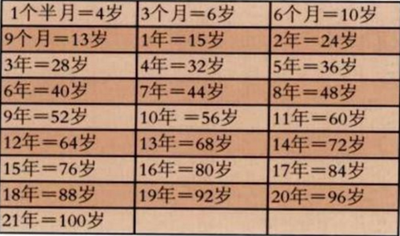 1个半月＝4岁 3个月＝6岁 6个月＝10岁
9个月＝13岁 1年＝15岁 2年＝24岁
3年＝28岁 4年＝32岁 5年＝36岁
6年＝40岁 7年＝44岁 8年＝48岁
9年＝52岁 10年 ＝56岁 11年＝60岁
12年＝64岁 13年＝68岁 14年＝72岁
15年＝76岁 16年＝80岁 17年＝84岁
18年＝88岁 19年＝92岁 20年＝96岁
21年＝100岁